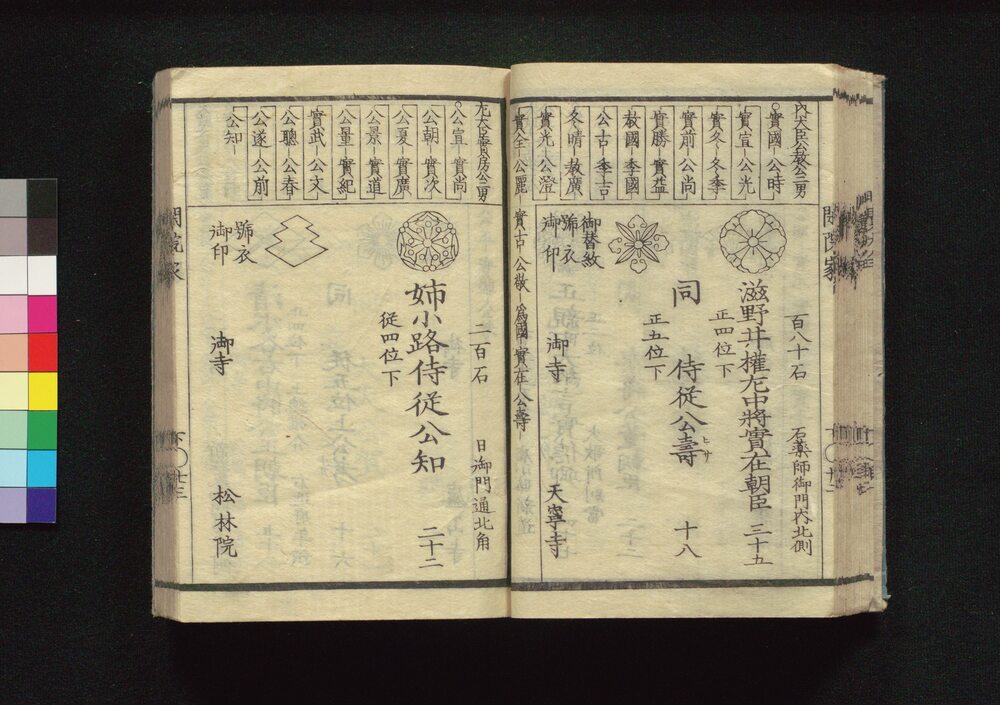 閑院家
内大臣公教公三男
實國-公時
實宣-公光
實冬-冬季
實前-公尚
實勝-實益
教國-季國
公古-季吉
冬晴-教廣
實光-公澄
實全-公麗-實古-公敬-爲國-實在-公壽-
百八十石
石薬師御門内北側
滋野井權左中將實在朝臣
三十五
正四位下
同
侍從公壽
ヒサ
十八
正五位下
御替紋
號衣
御印
御寺
天寧寺
左大臣實房公三男
公宣-實尚
公朝-實次
公夏-實廣
公景-實道
公量-實紀
實武-公文
公聰-公春
公遂-公前
公知-
二百石
日御門通北角
姉小路侍從公知
二十二
從四位下
號衣
御印
御寺
松林院
閑院家
下〇廿三